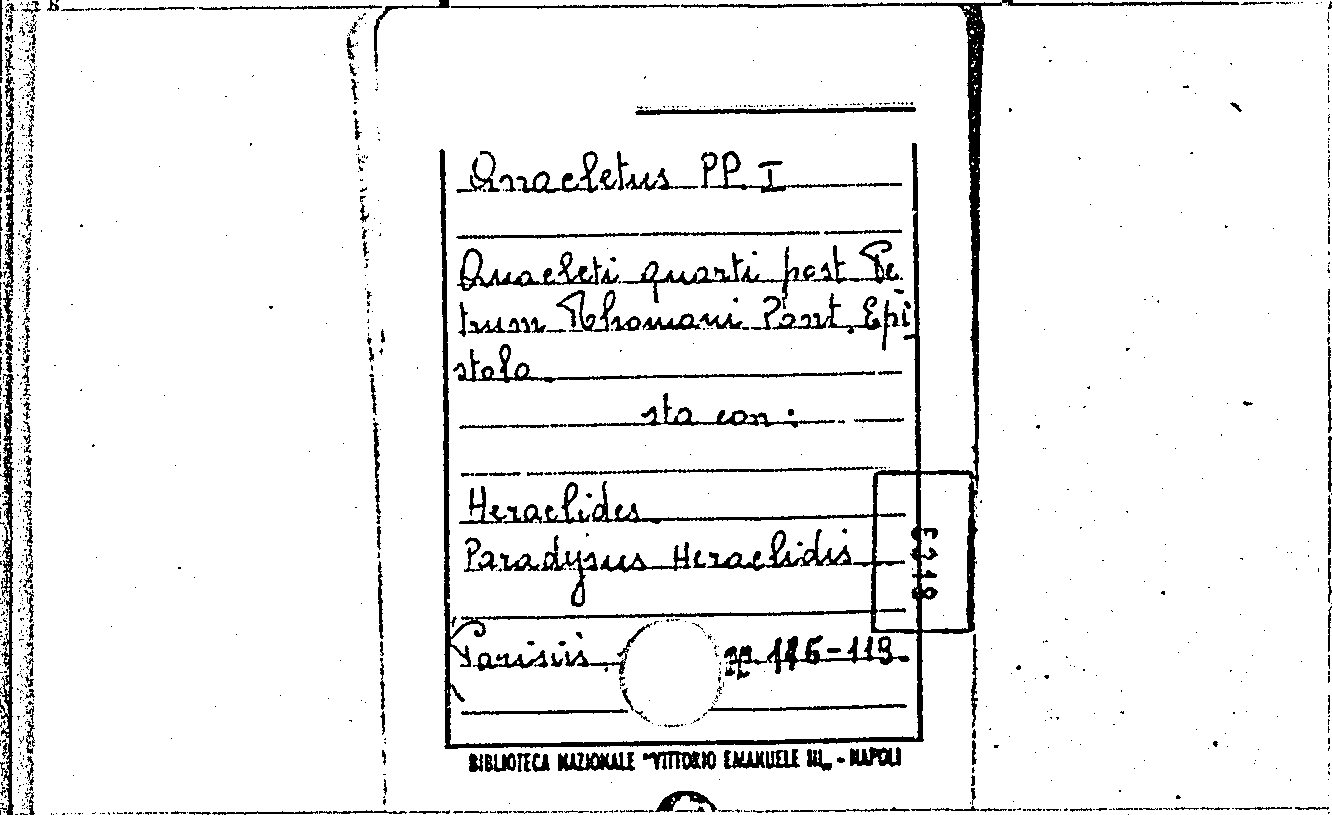 Anacletus PP. I
Anacleti quarti post Pe
trum Rhomani Pont. Epi
stola.
sta con:
Heraclides.
Paradysus Heraclidis
Parisiis. pp. 116-119.
BIBLIOTECA NAZIONALE "VITTORIO EMANUELE III" - NAPOLI